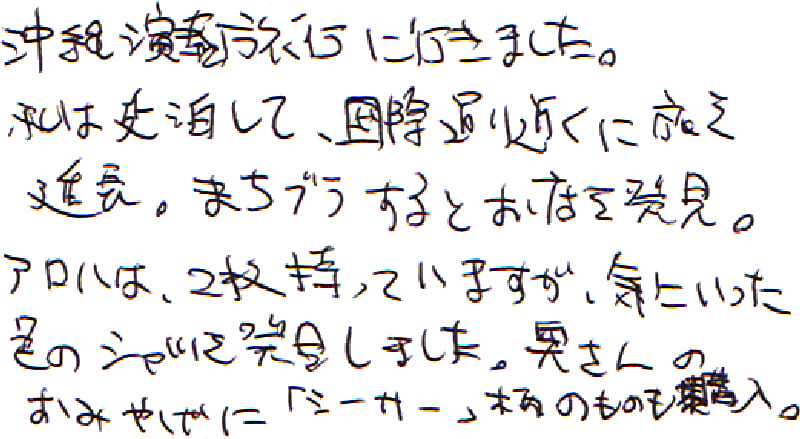 沖縄演奏旅行に行きました。
私は延泊して、国際通り近くに旅を
延長。まちブラするとお店を発見。
アロハは、2枚持っていますが、気にいった
色のシャツを発見しました。奥さんの
おみやげに「シーサー」柄のものも購入。